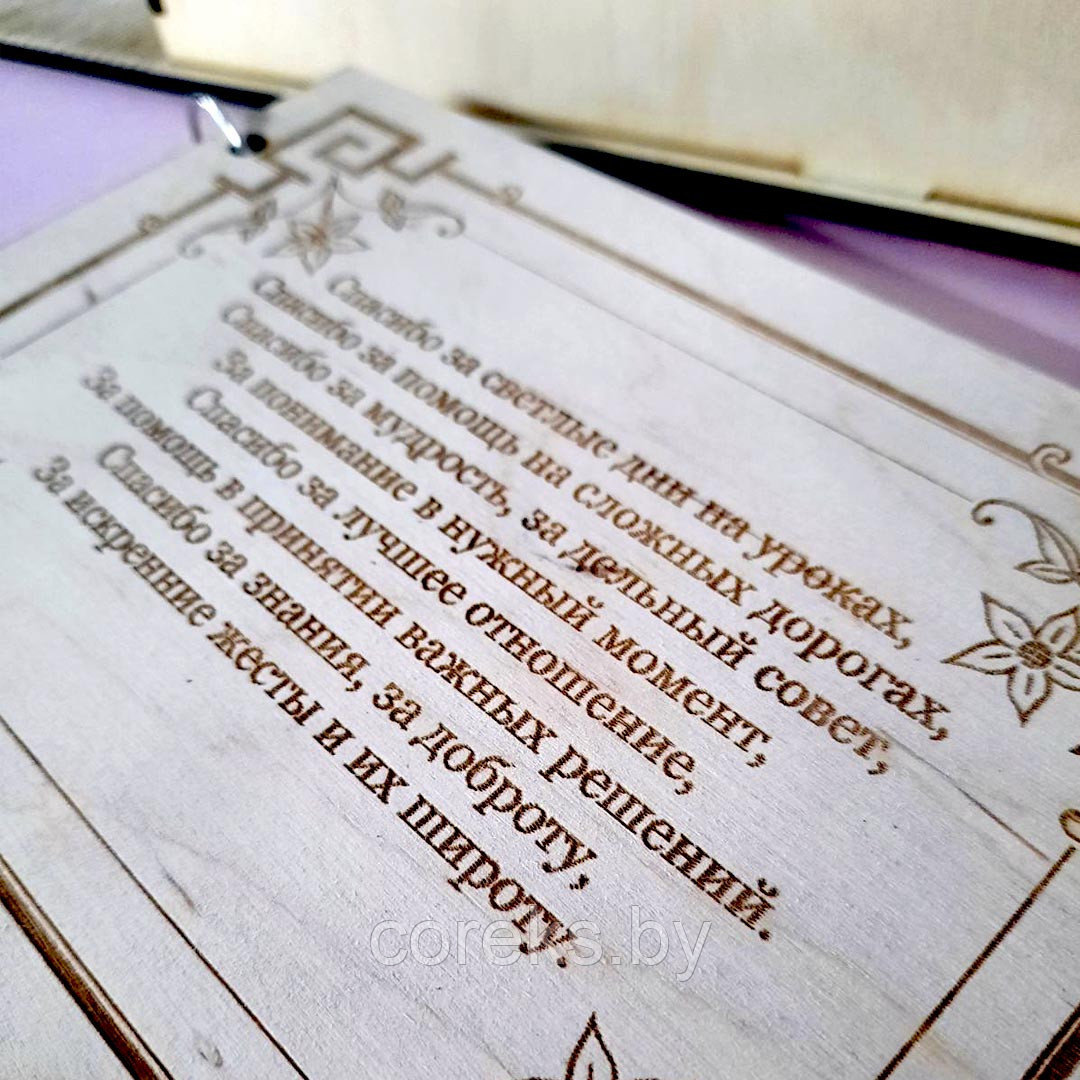 Спасибо за светлые дни на уроках,
Спасибо за помощь на сложных дорогах,
Спасибо за мудрость, за дельный совет,
За понимание в нужный момент,
Спасибо за лучшее отношение,
За помощь в принятии важных решений.
Спасибо за знания, за доброту,
За искренние жесты и их широту.
coreks.by